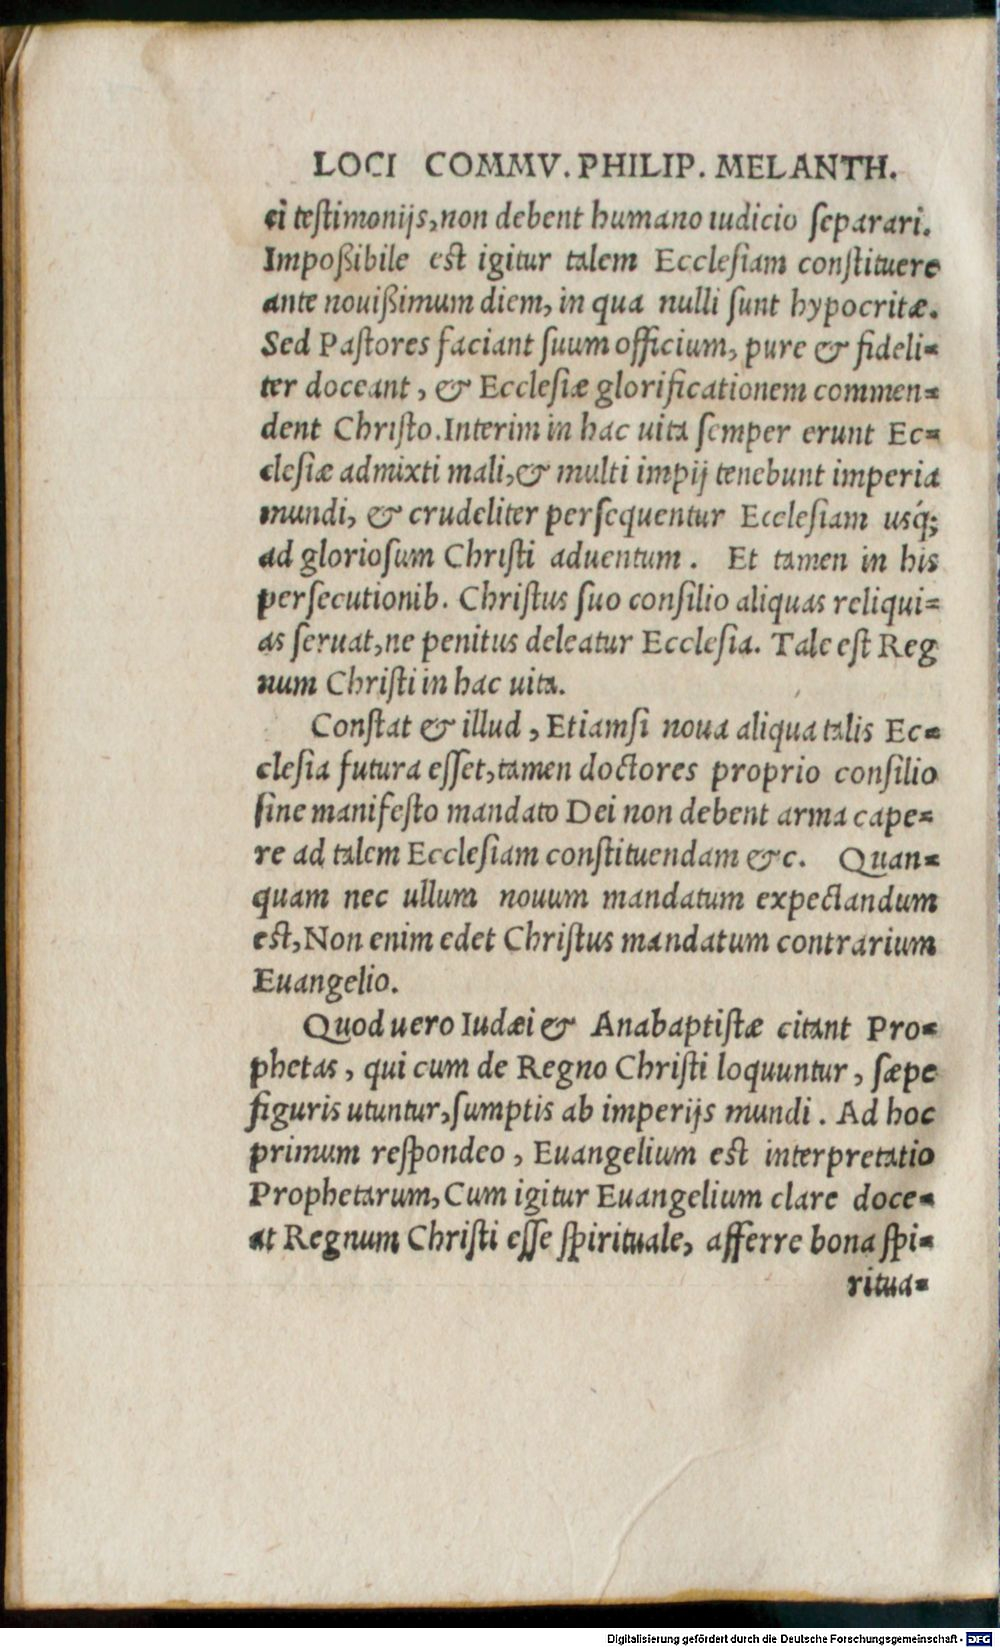 LOCI COMMV. PHILIP. MELANTH.
ci testimonijs, non debent humano iudicio separari.
Impoßibile est igitur talem Ecclesiam constituere
ante nouißimum diem, in qua nulli sunt hypocritæ.
Sed Pastores faciant suum officium, pure & fideli-
ter doceant, & Ecclesiæ glorificationem commen-
dent Christo. Interim in hac uita semper erunt Ec-
clesiæ admixti mali, & multi impij tenebunt imperia
mundi, & crudeliter persequentur Ecclesiam usq́;
ad gloriosum Christi aduentum. Et tamen in his
persecutionib. Christus suo consilio aliquas reliqui-
as seruat, ne penitus deleatur Ecclesia. Tale est Reg
num Christi in hac uita.
Constat & illud, Etiamsi noua aliqua talis Ec-
clesia futura esset, tamen doctores proprio consilio
sine manifesto mandato Dei non debent arma cape-
re ad talem Ecclesiam constituendam &c. Quan-
quam nec ullum nouum mandatum expectandum
est, Non enim edet Christus mandatum contrarium
Euangelio.
Quod uero Iudæi & Anabaptistæ citant Pro-
phetas, qui cum de Regno Christi loquuntur, sæpe
figuris utuntur, sumptis ab imperijs mundi. Ad hoc
primum respondeo, Euangelium est interpretatio
Prophetarum, Cum igitur Euangelium clare doce-
at Regnum Christi esse spirituale, afferre bona spi-
ritua-
Digitalisierung gefördert durch die Deutsche Forschungsgemeinschaft - DFG